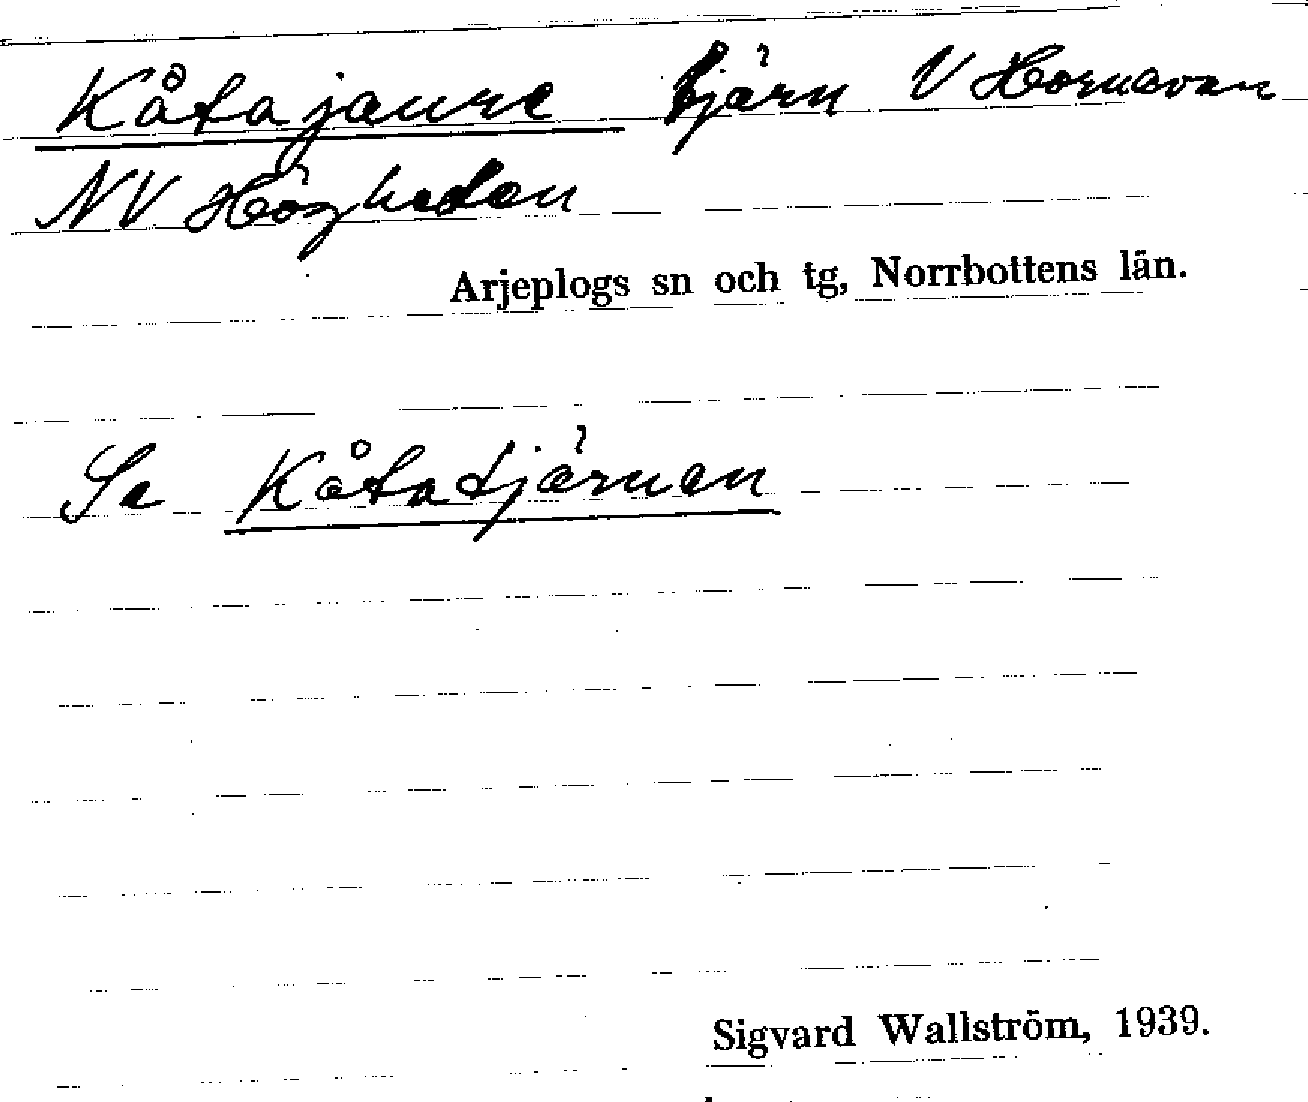 Kåtajaure tjärn V Hornavan
NV Högheden
Arjeplogs sn och tg, Norrbottens län.
Se Kåtatjärnen
Sigvard Wallström, 1939.